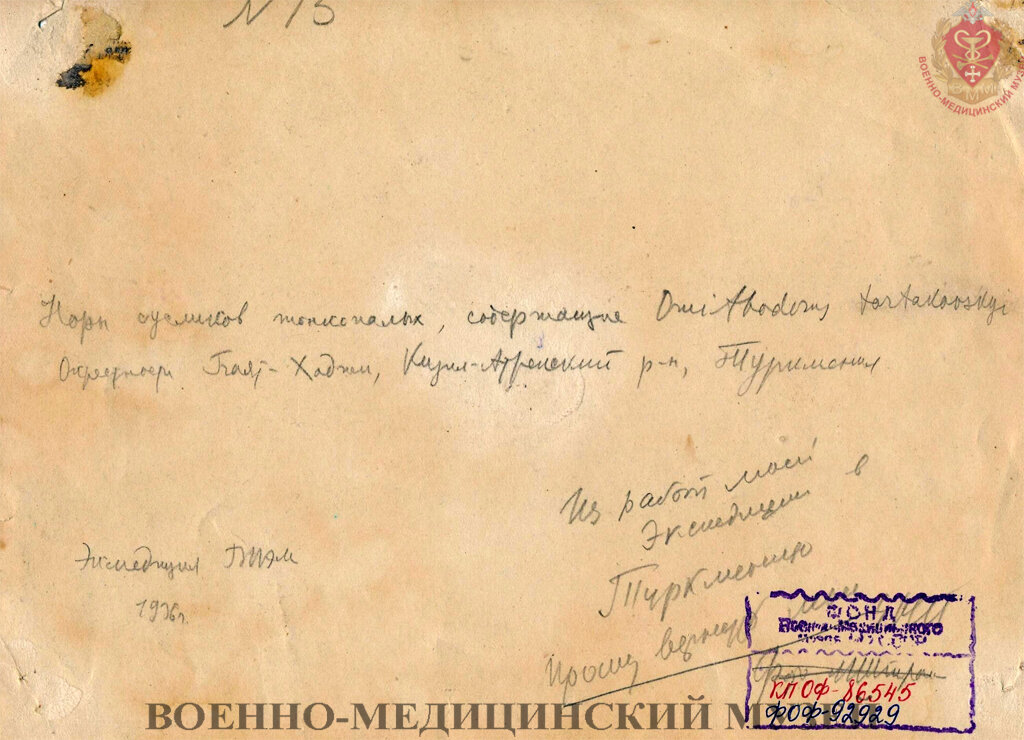 N 13
ВОЕННО-МЕДИЦИНСКИЙ МУЗ
ВММ
Норы сусликов тонкопалых, содержащие Ornithodorus tartakovskyi
Окрестности Баят-Ходжи, Кизил-Атрекский р-н, Туркмения
Из работ моей
Экспедиции в
Туркмению
Экспедиция
1936г.
Прошу вернуть мне
ФОНД
Военно-Медицинского
Музея
КП ОФ-86545
ФОФ-92929
ВОЕННО-МЕДИЦИНСКИЙ М